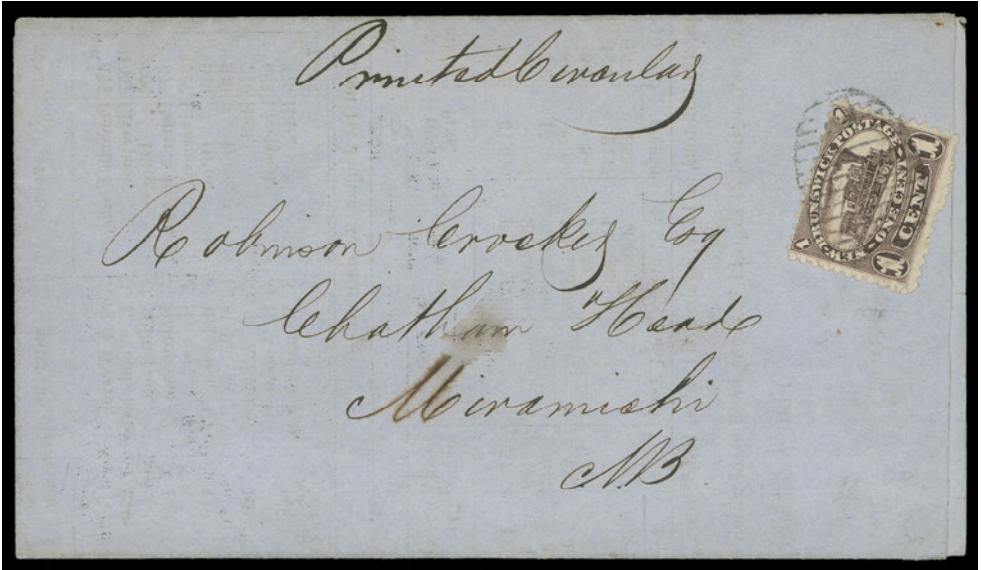 Printed Circular
NEW-BRUNSWICK POSTAGE
1
1
ONE CENT
1 CENT 1
Robinson Crocker Esq
Chatham Head
Miramichi
NB